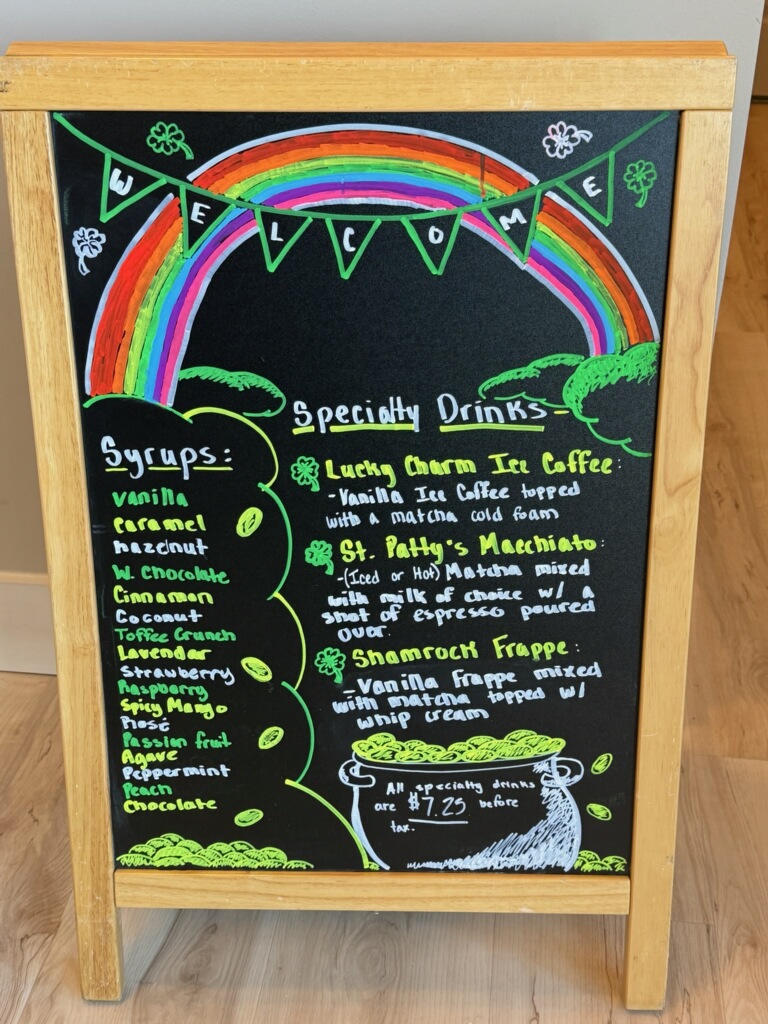 WELCOME
Syrups:
vanilla
caramel
hazelnut
W. Chocolate
Cinnamon
Coconut
Toffee Crunch
Lavender
Strawberry
Raspberry
Spicy Mango
Rosé
Passion fruit
Agave
Peppermint
Peach
Chocolate
Specialty Drinks-
Lucky Charm Ice Coffee:
-Vanilla Ice Coffee topped
with a matcha cold foam
St. Patty's Macchiato:
-(Iced or Hot) Matcha mixed
with milk of choice w/ a
shot of espresso poured
over.
Shamrock Frappe:
-Vanilla Frappe mixed
with matcha topped w/
whip cream
All specialty drinks
are $7.25 before
tax.